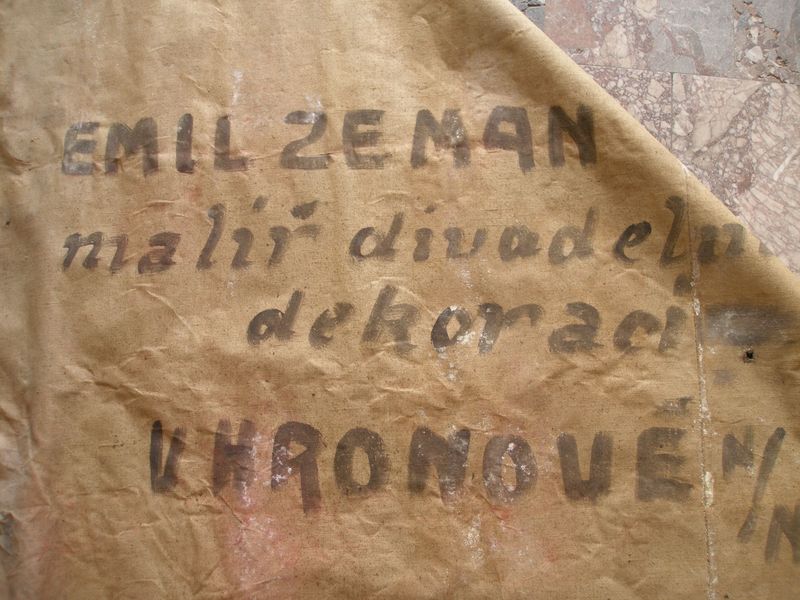 EMIL ZEMAN
malíř divadeln
dekorací
V HRONOVĚ N/N